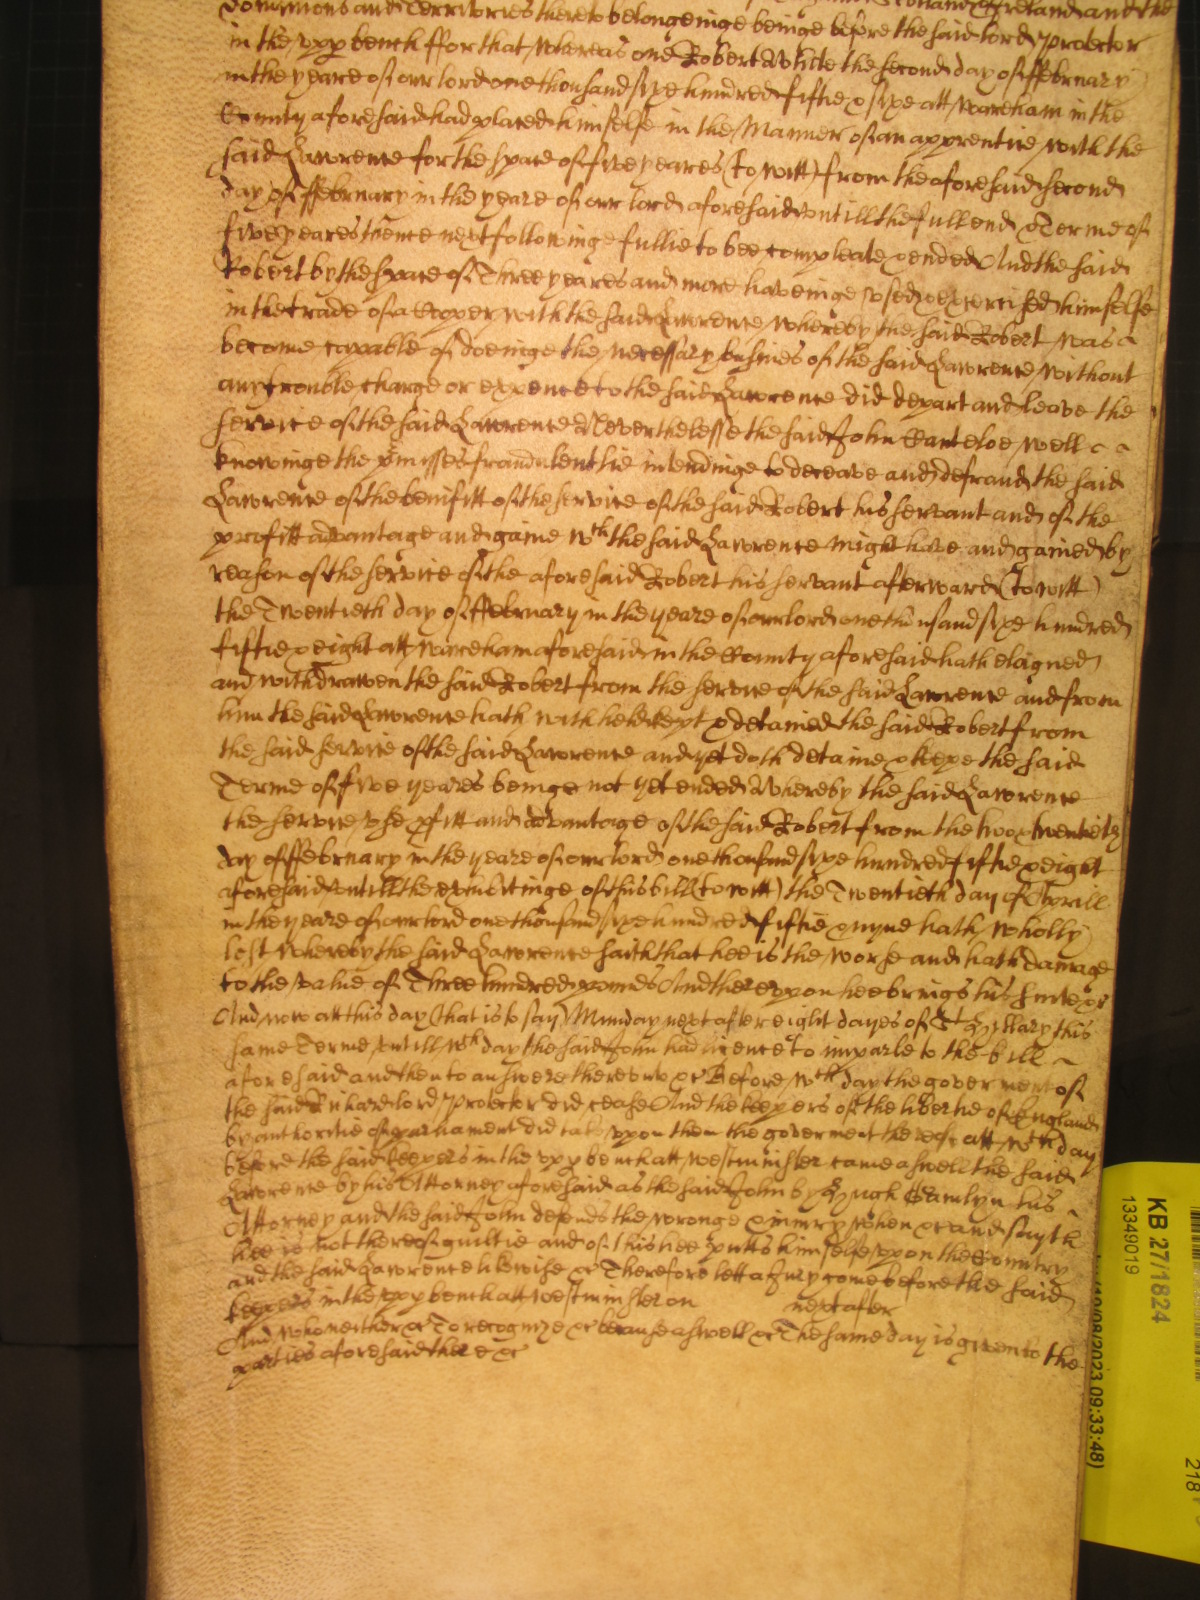 dominions and Territories thereto belongeinge beinge before the said lord Protector
in the upp bench ffor that whereas one Robert White the second day of ffebruary
in the yeare of our lord one thousand sixe hundred fiftie & sixe att Wareham in the
County aforesaid had placed himselfe in the Manner of an apprentice with the
said Lawrence for the space of five yeares (to witt) from the aforesaid second
day of ffebruary in the yeare of our lord aforesaid untill the full end & Terme of
five yeares thence next followinge fullie to bee compleate & ended And the said
Robert by the space of Three yeares and more haveinge used & exercised himselfe
in the trade of a Cooper with the said Lawrence whereby the said Robert was
become capable of doeinge the necessary busines of the said Lawrence without
any trouble charge or expence to the said Lawrence did depart and leave the
service of the said Lawrence Neverthelesse the said John Canteloe well
knowinge the pmisses fraudulentlie intendinge to deceave and defraud the said
Lawrence of the benifitt of the service of the said Robert his servant and of the
profitt advantage and gaine wch the said Lawrence might have and gained by
reason of the service of the aforesaid Robert his servant afterward (to witt)
the Twentieth day of ffebruary in the yeare of our lord one thousand sixe hundred
fiftie & eight att Wareham aforesaid in the County aforesaid hath elaigned
and withdrawen the said Robert from the service of the said Lawrence and from
him the said Lawrence hath withheld kept & detained the said Robert from
the said service of the said Lawrence and yet doth detaine & keepe the said
Terme of five yeares beinge not yet ended Whereby the said Lawrence
the service use pfitt and advantage of the said Robert from the twentieth
day of ffebruary in the yeare of our lord one thousand sixe hundred fiftie & eight
aforesaid untill the exhibitinge of this bill (to witt) the Twentieth day of Aprill
in the yeare of our lord one thousand sixe hundred fiftie & nyne hath wholly
lost whereby the said Lawrence saith that hee is the worse and hath damage
to the value of Three hundred pounds And thereupon hee brings his suite &c
And now att this day (that is to say) Munday next after eight dayes of St Hillary this
same Terme untill wch day the said John had licence to imparle to the bill
aforesaid and then to answere thereunto &c Before wch day the goverment of
the said Richard lord Protector did cease And the keepers of the libertie of England
by authoritie of parliament did take upon them the goverment thereof att wch day
before the said keepers in the upp bench att Westminster came aswell the said
Lawrence by his Attorney aforesaid as the said John by Hugh Gamlyn his
Attorney and the said John defends the wronge & iniury when &c and sayth
hee is not thereof guiltie and of this hee putts himselfe upon the Country
and the said Lawrence likewise &c Therefore lett a Jury come before the said
keepers in the upp bench att Westminster on next after
And who neither &c To recognize &c because aswell &c The same day is given to the
parties aforesaid there &c
KB 27/1824
13349019
10/08/2023 09:33:48)
218